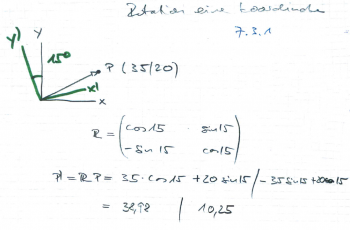 Rotation eine Koordinate
7.3.1
y' y 15°
P (35/20)
x'
x
R = (cos15 sin15
-sin15 cos15)
P' = R P = 35·cos15 + 20 sin15 / -35 sin15 + 20cos15
= 38,98 / 10,25